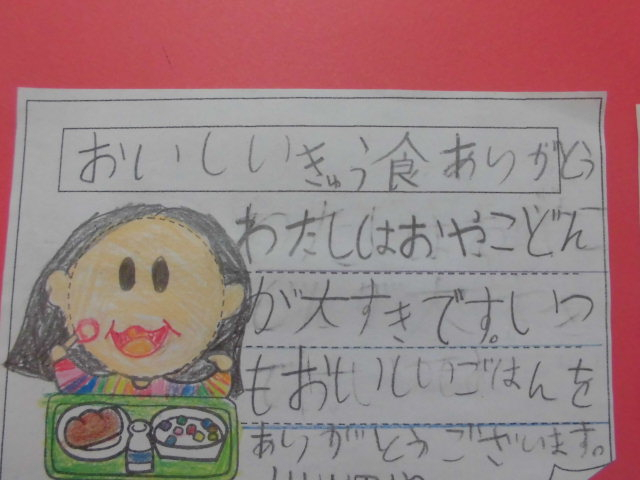 おいしいきゅう食ありがとう
わたしはおやこどん
が大すきです。いつ
もおいしいごはんを
ありがとうございます。